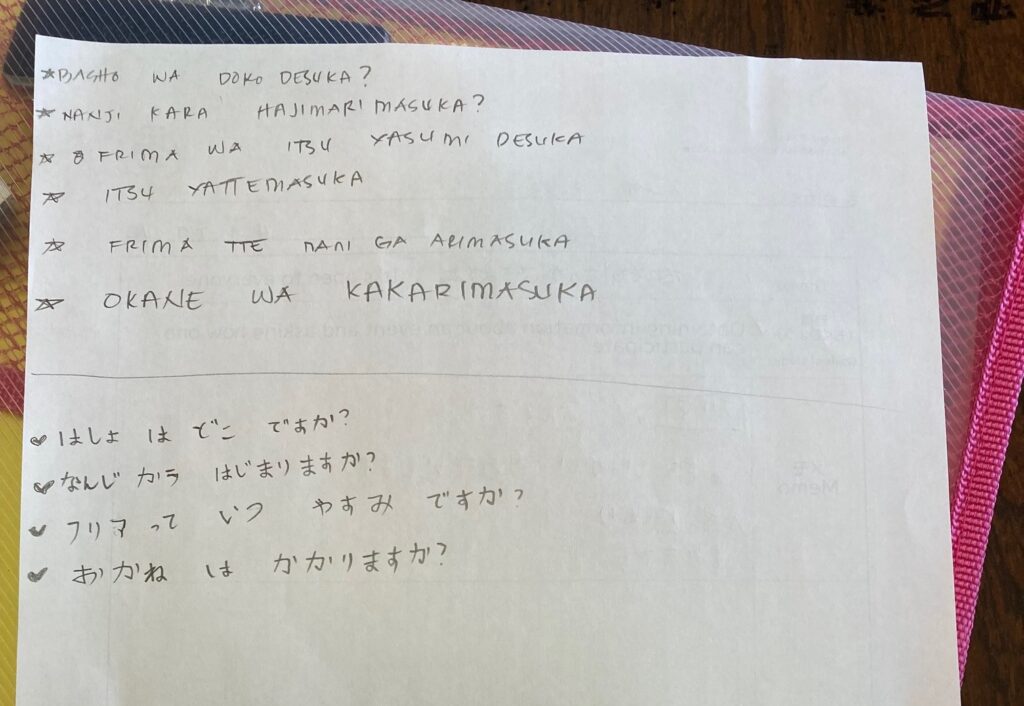 ☆BASHO WA DOKO DESUKA?
☆NANJI KARA HAJIMARIMASUKA?
☆ FRIMA WA ITSU YASUMI DESUKA
☆ ITSU YATTEMASUKA
☆ FRIMA TTE NANI GA ARIMASUKA
☆ OKANE WA KAKARIMASUKA
はしょ は どこ ですか?
なんじ から はじまりますか?
フリマって いつ やすみ ですか?
おかね は かかりますか?
メモ
Memo